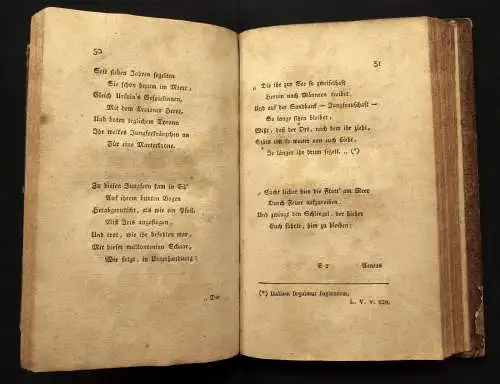 50
Seit sieben Jahren segelten
Sie schon herum im Meere,
Gleich Ursula's Gespielinnen,
Mit dem Trojaner Heere,
Und boten jeglichem Tyrann
Ihr welkes Jungfernkränzchen an
Für eine Marterkrone.
Zu diesen Jungfern kam in Eil'
Auf ihrem bunten Bogen
Herabgerutscht, als wie ein Pfeil,
Miß Iris angeflogen,
Und trat, wie ihr befohlen war,
Mit dieser malkontenten Schaar,
Wie folgt, in Unterhandlung:
„Die
51
„Die ihr zur See so zweifelhaft
Herum nach Männern treibet
Und auf der Sandbank — Jungfrauschaft —
So lange sitzen bleibet,
Wißt, daß der Ort, nach dem ihr zieht,
Stäts um so weiter von euch flieht,
Je länger ihr drum segelt. „ (*)
„Sucht lieber hier die Flott' am Meer
Durch Feuer aufzureiben,
Und zwingt den Schlingel, der hieher
Euch führte, hier zu bleiben:
Aeneas
(*) Italiam sequimur fugientem,
L. V. v. 629.